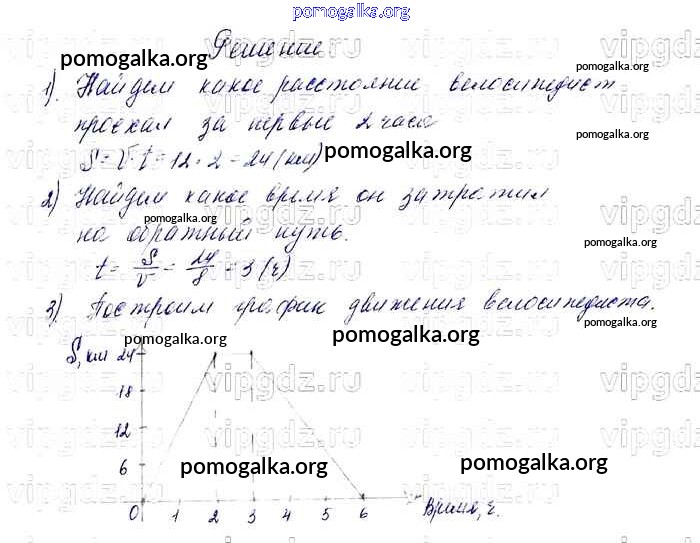 pomogalka.org
Решение
pomogalka.org
1). Найдем какое расстояние велосипедист
проехал за первые 2 часа
pomogalka.org
S = V · t = 12 · 2 = 24 (км)
pomogalka.org
2) Найдем какое время он затратил
pomogalka.org
на обратный путь.
pomogalka.org
t = S/V = 24/8 = 3 (ч)
3) Построим график движения велосипедиста.
pomogalka.org
pomogalka.org
S, км 24
18
12
6
pomogalka.org
pomogalka.org
0 1 2 3 4 5 6 Время, ч.
vipgdz.ru